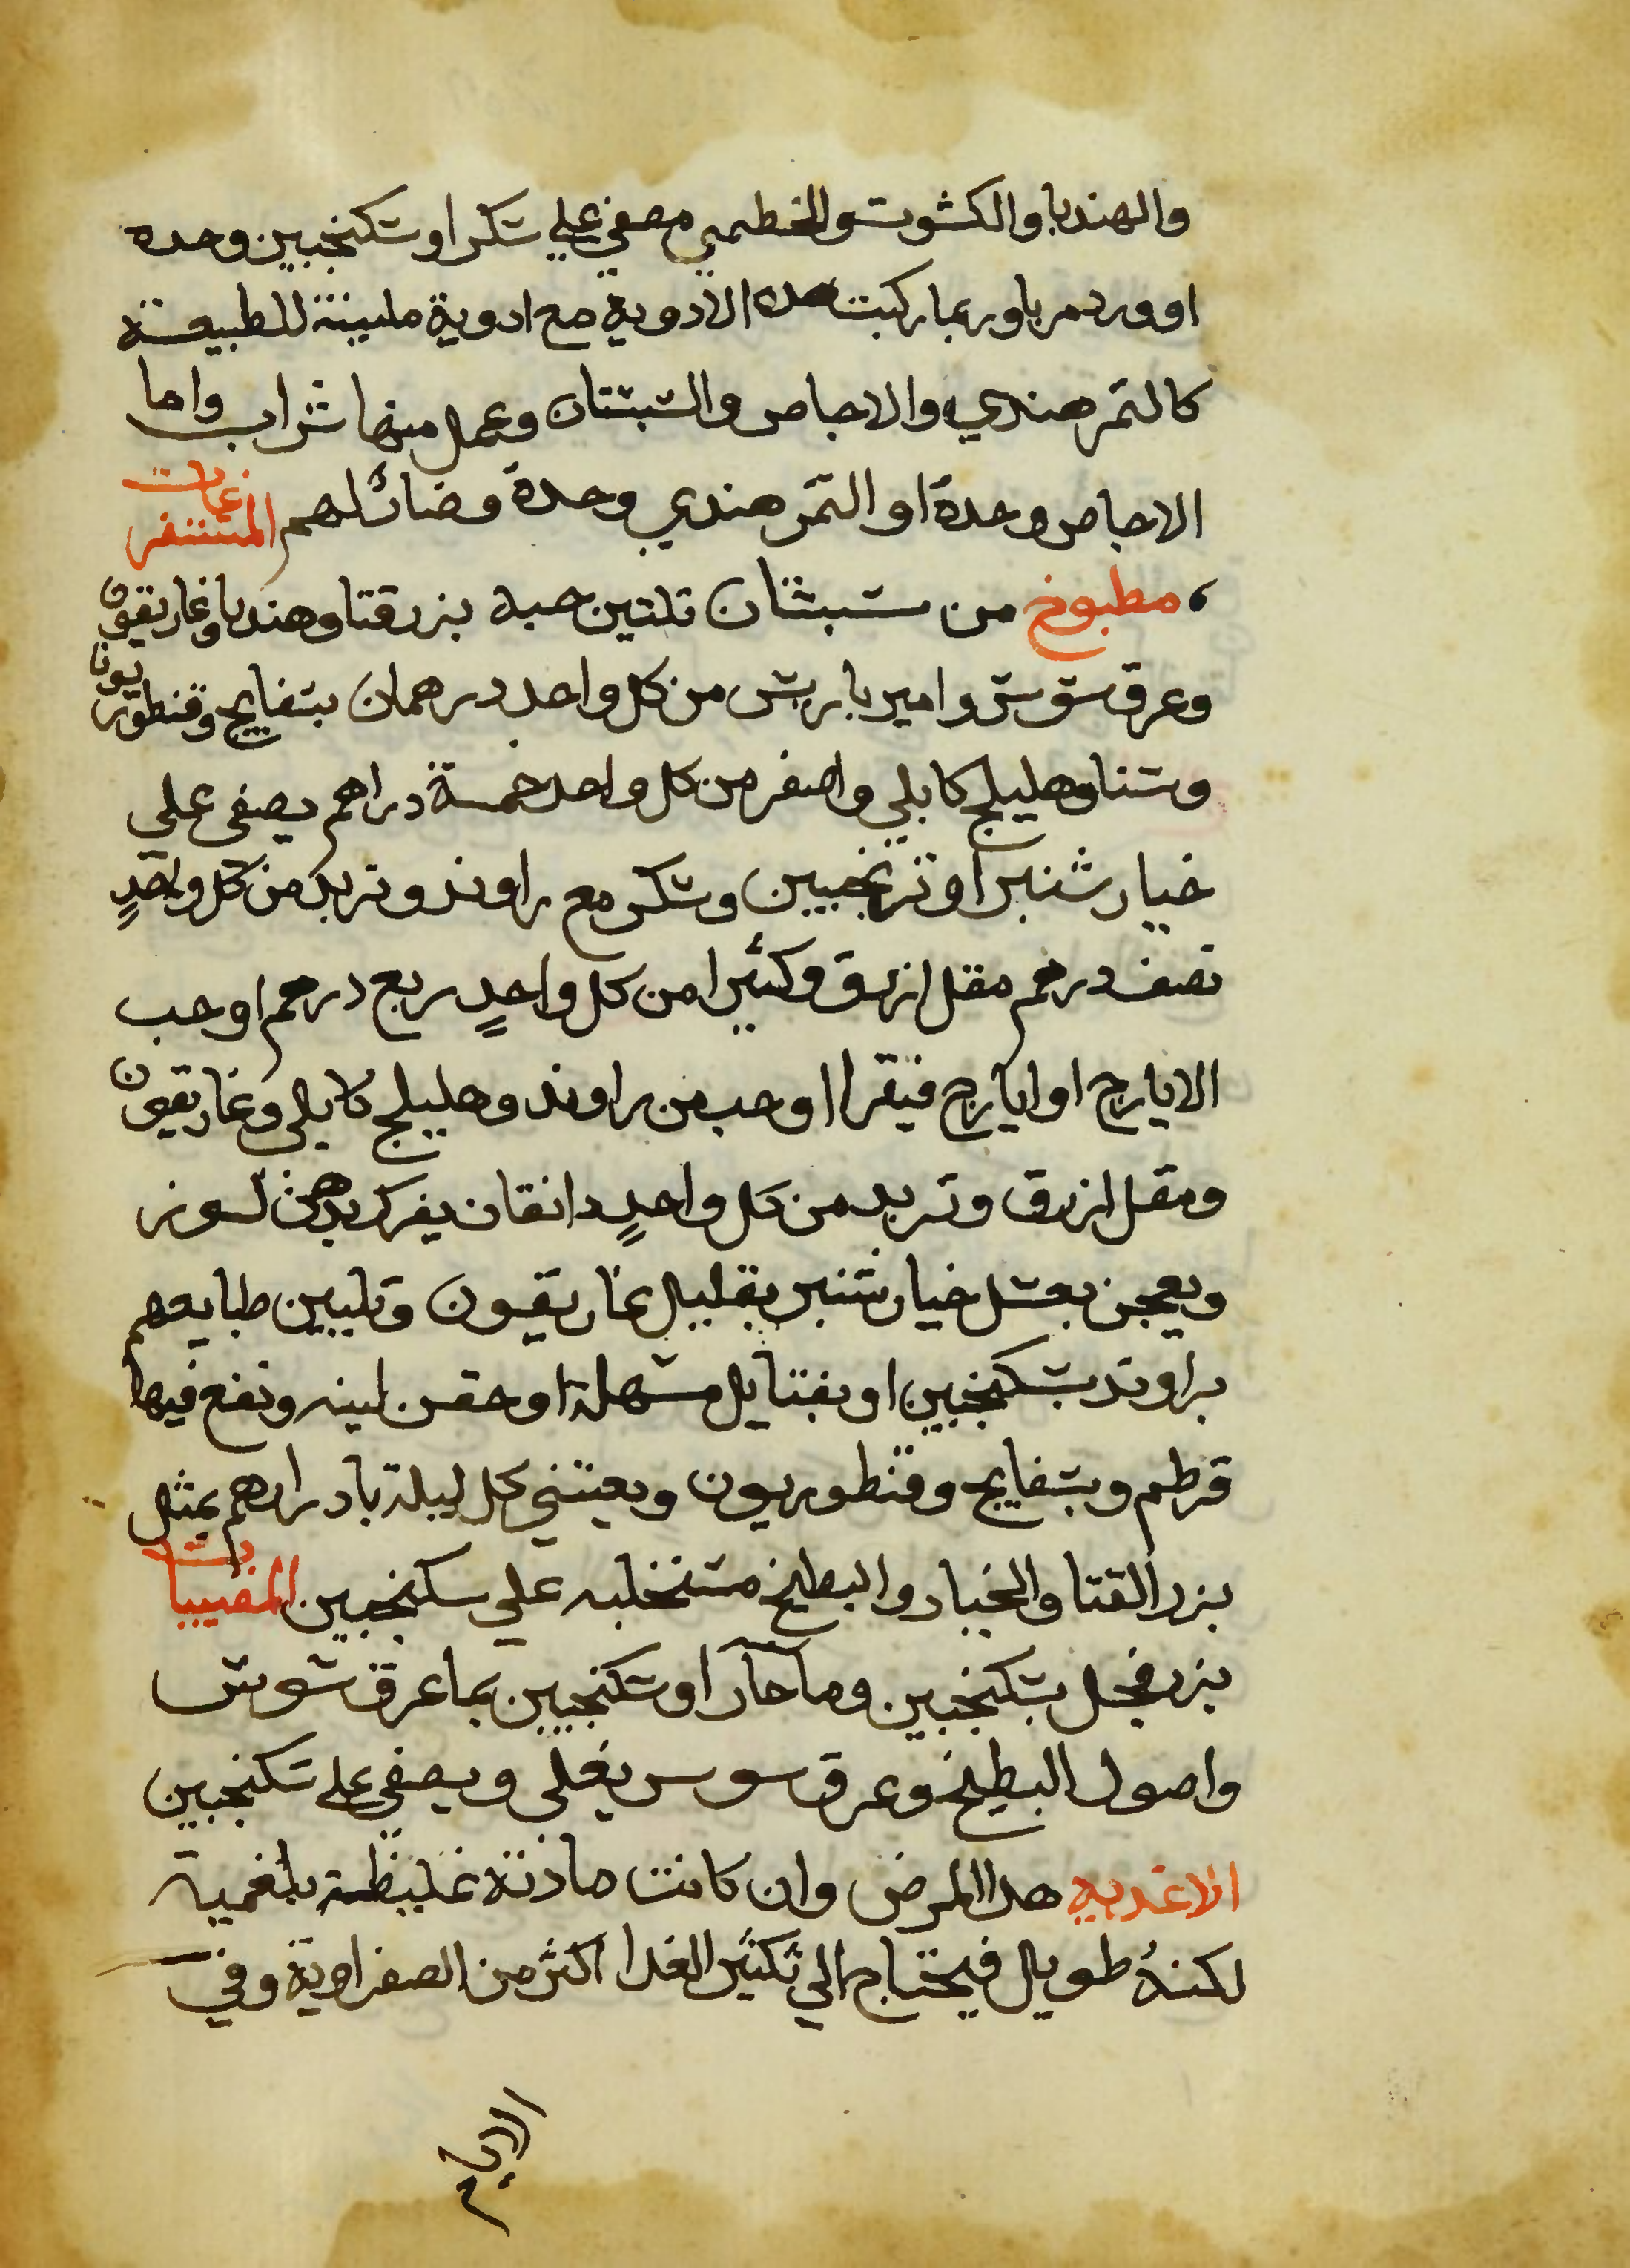 والهندبا والكشوت والخطمي مصفي علي سكر او سكنجبين وحده
او ورد مربا وربما ركبت هده الادوية مع ادوية ملينة للطبيعة
كالتمر هندي والاجاص والسبستان وعمل منها شراب واما
الاجاص وحدة او التمر هندي وحدة وضار لهم المستفرغات
مطبوخ من سبستان تلتين حبه بزر قتا وهندبا وغاريقون
وعرق سوس وامير باريس من كل واحد درهمان بسفايج وقنطوريون
وسنا وهليلج كابلي واصفر من كل واحد خمسة دراهم يصفى علي
خيار شنبر او ترنجبين وسكر مع راوند وتربد من كل واحدٍ
نصف درهم مقل ازرق وكثيرا من كل واحدٍ ربع درهم او حب
الايارج او ايارج فيقرا او حب من راوند وهليلج كابلي وغاريقون
ومقل ازرق وتربد من كل واحدٍ دانقان يفرك بدهن لوز
ويعجن بعسل خيار شنبر بقليل غاريقون وتليين طبايعهم
براوند بسكنجبين او بفتايل مسهلة او حقن لينه وتقع فيها
قرطم وبسفايج وقنطوريون ويعتني كل ليلة بادرارهم بمثل
بزر القتا والخيار والبطيخ مستحلبه علي سكنجبين المقييات
بزر فجل بسكنجبين وما حار او سكنجبين بما عرق سوس
واصول البطيخ وعرق سوس يغلي ويصفي علي سكنجبين
الاغديه هدا المرض وان كانت مادته غليظة بلغمية
لكنهُ طويل فيحتاج الي تكثير الغدا اكثر من الصفراوية وفي